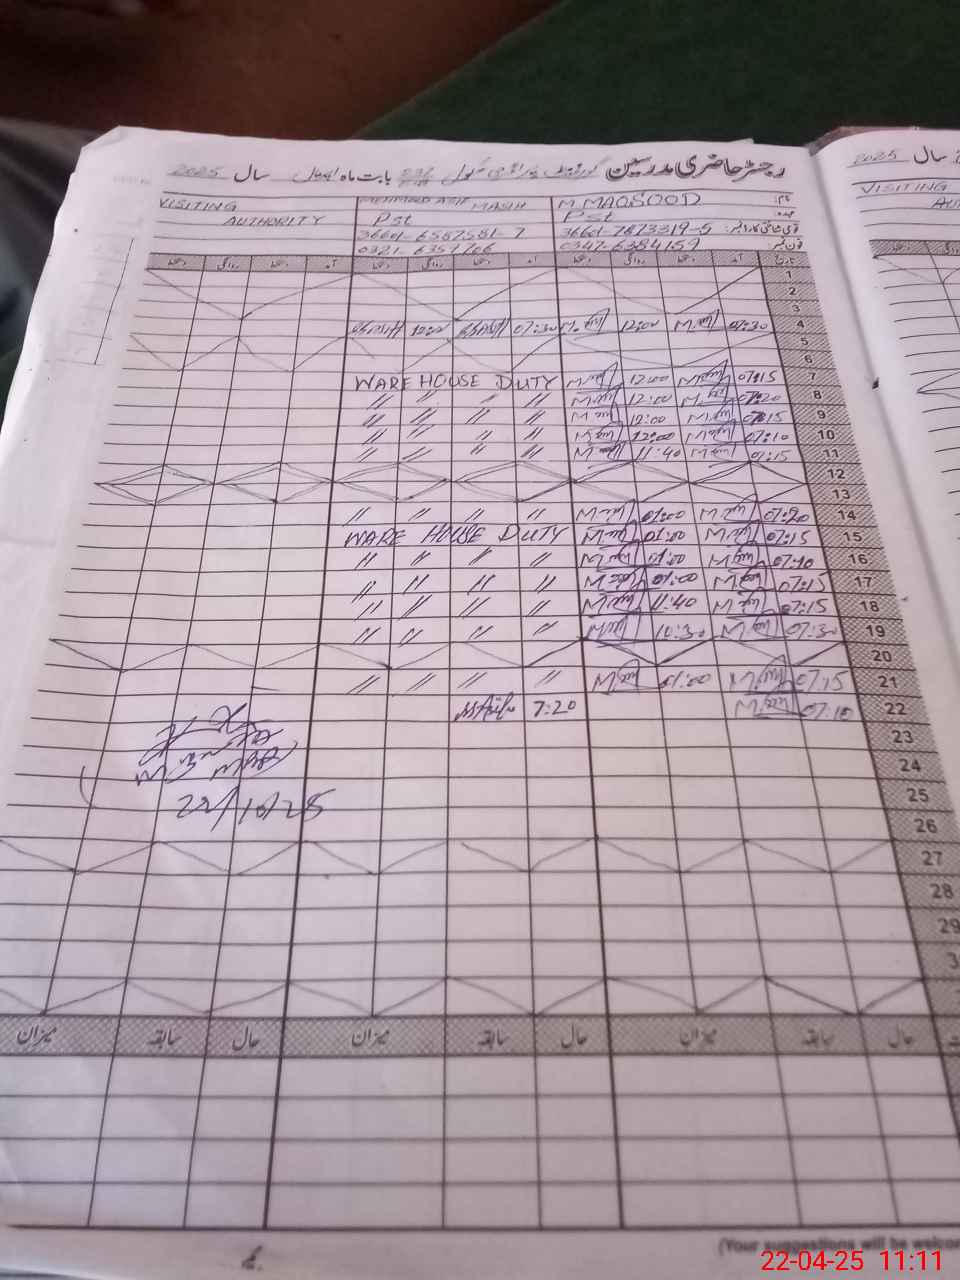 رجسٹر حاضری مدرسین گورنمنٹ پرائمری سکول بابت ماہ اپریل سال 2025
VISITING AUTHORITY MEHMOOD ASIF MASIH M. MAQSOOD نام:
Pst Pst عہدہ:
36601-6587581-7 36601-7873319-5 قومی شناختی کارڈ نمبر:
0321-6357166 0347-6384159 فون نمبر:
دستخط روانگی دستخط آمد دستخط روانگی دستخط آمد دستخط روانگی دستخط آمد تاریخ
1
2
3
10:00 07:30 12:00 07:30 4
5
6
WARE HOUSE DUTY 12:00 07:15 7
〃 〃 〃 〃 12:00 07:20 8
〃 〃 〃 〃 12:00 07:15 9
〃 〃 〃 〃 12:00 07:10 10
〃 〃 〃 〃 11:40 07:15 11
12
13
〃 〃 〃 〃 01:00 07:20 14
WARE HOUSE DUTY 01:00 07:15 15
〃 〃 〃 〃 01:00 07:10 16
〃 〃 〃 〃 01:00 07:15 17
〃 〃 〃 〃 11:40 07:15 18
〃 〃 〃 〃 10:30 07:30 19
20
〃 〃 〃 〃 01:00 07:15 21
7:20 07:10 22
23
24
25
26
27
28
29
میزان سابقہ حال میزان سابقہ حال میزان سابقہ حال
(Your suggestions will be welco
سال 2025
VISITING
22-04-25 11:11